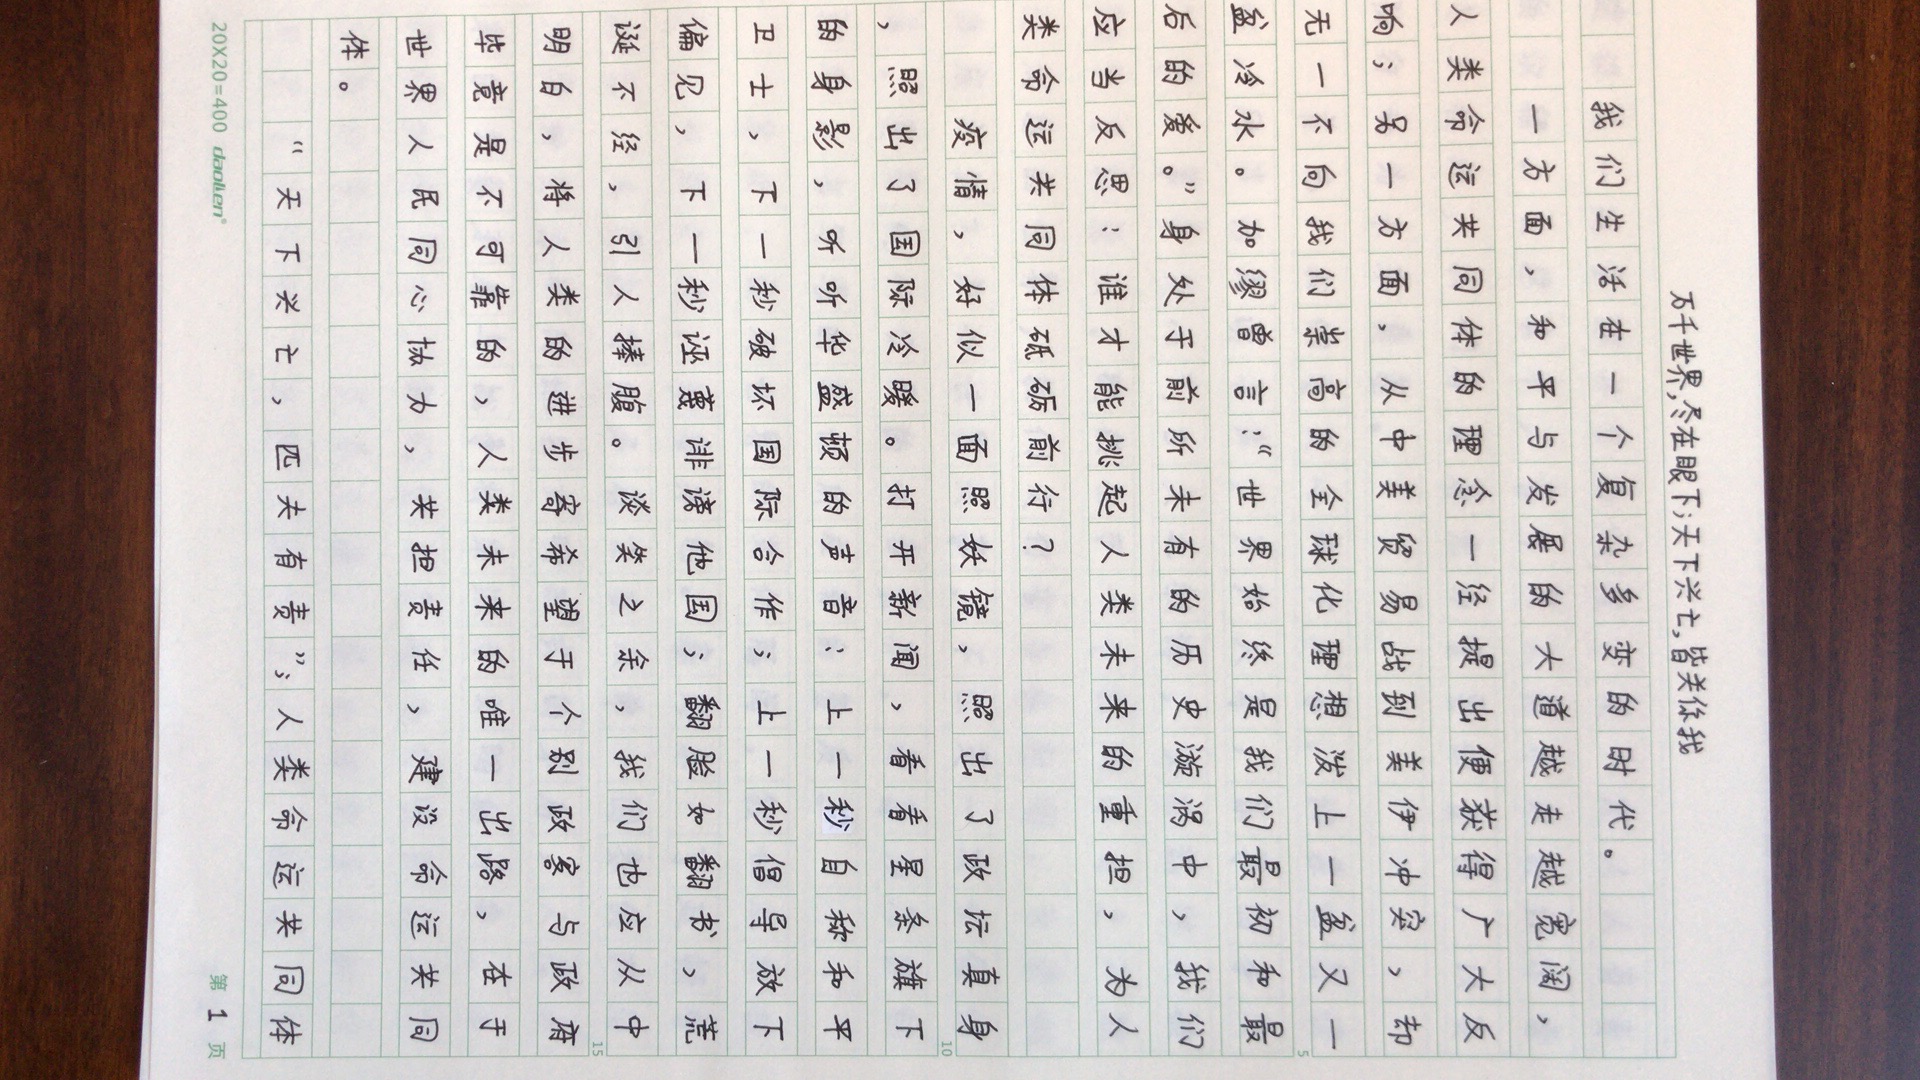 万千世界,尽在眼下;天下兴亡,皆关系我
我们生活在一个复杂多变的时代。
一方面,和平与发展的大道越走越宽阔,
人类命运共同体的理念一经提出便获得广大反
响;另一方面,从中美贸易战到美伊冲突,却
无一不向我们崇高的全球化理想泼上一盆又一
盆冷水。加缪曾言:“世界始终是我们最初和最
后的爱。”身处于前所未有的历史漩涡中,我们
应当反思:谁才能挑起人类未来的重担,为人
类命运共同体砥砺前行?
疫情,好似一面照妖镜,照出了政坛真身
,照出了国际冷暖。打开新闻,看看星条旗下
的身影,听听华盛顿的声音:上一秒自称和平
卫士,下一秒破坏国际合作;上一秒倡导放下
偏见,下一秒诬蔑诽谤他国;翻脸如翻书,荒
诞不经,引人捧腹。谈笑之余,我们也应从中
明白,将人类的进步寄希望于个别政客与政府
毕竟是不可靠的,人类未来的唯一出路,在于
世界人民同心协力,共担责任,建设命运共同
体。
“天下兴亡,匹夫有责”;人类命运共同体
20X20=400 daolien®
第 1 页
5
10
15